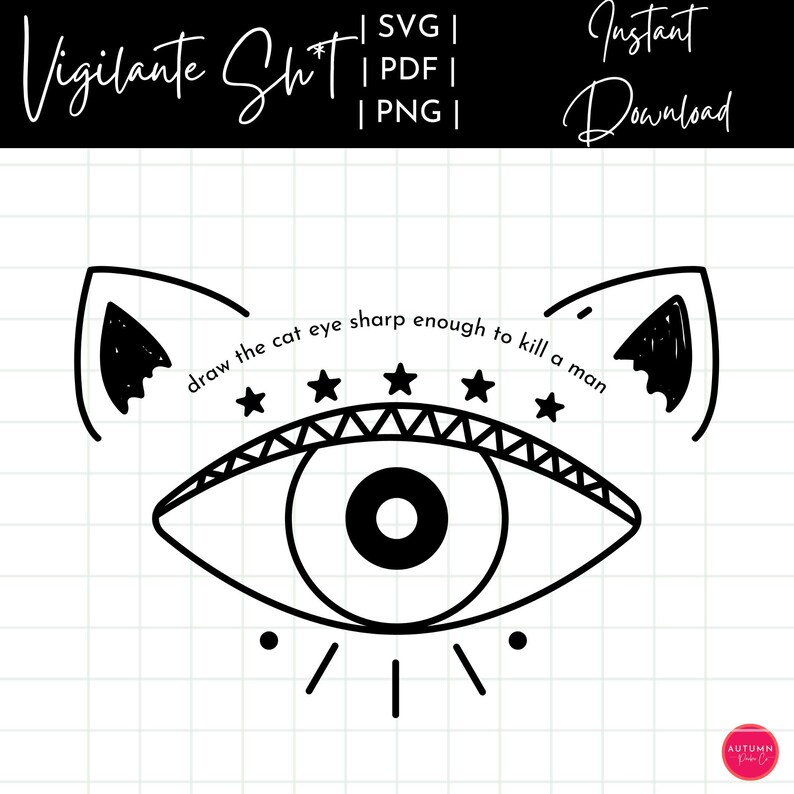 Vigilante Sh*t
| SVG |
| PDF |
| PNG |
Instant
Download
draw the cat eye sharp enough to kill a man
AUTUMN